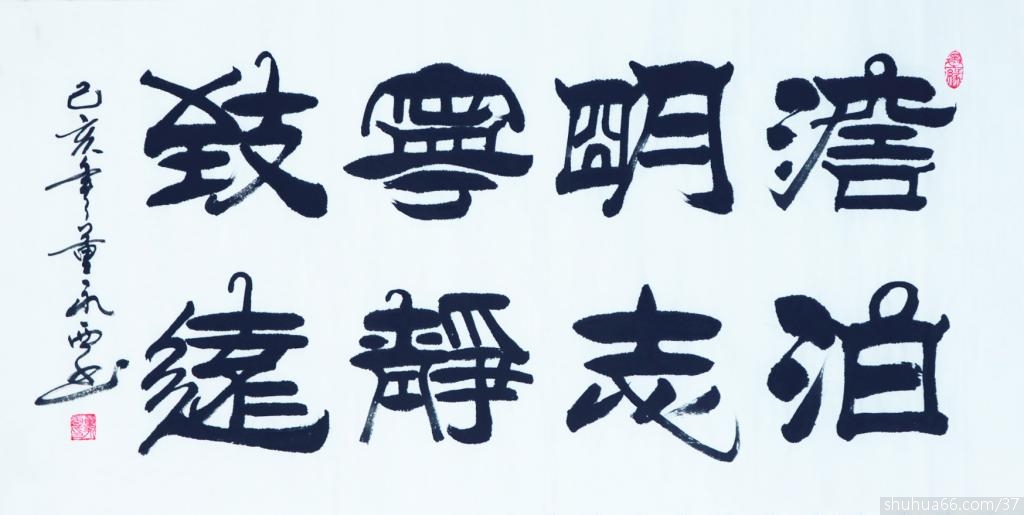 澹泊
明志
寧静
致遠
己亥年董永西书
shuhua66.com/37